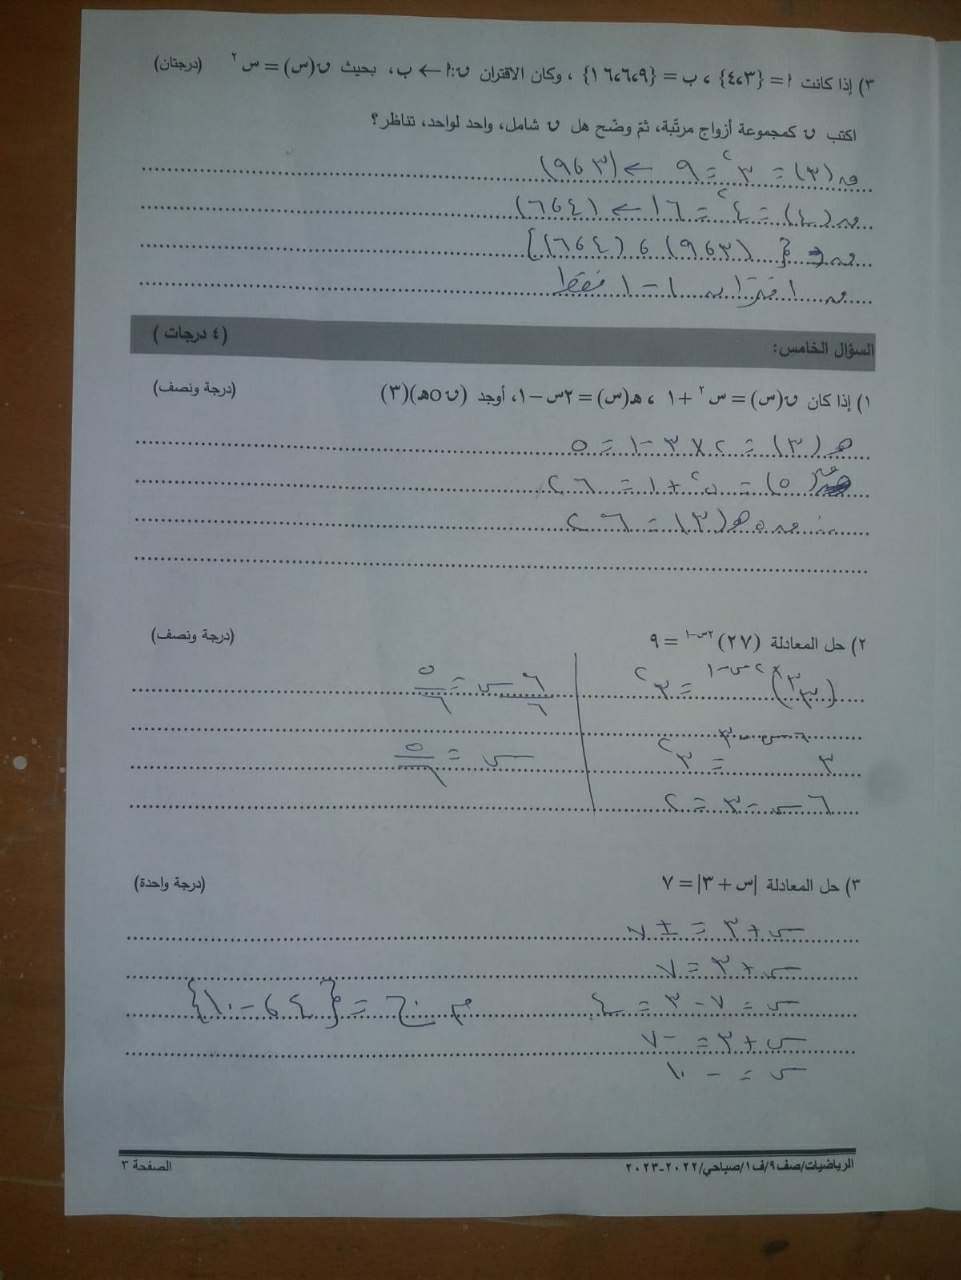 ٣) إذا كانت أ = {٤،٣} ، ب = {١٦،٦،٩} ، وكان الاقتران ن:أ ← ب، بحيث ن(س) = س٢ (درجتان)
اكتب ن كمجموعة أزواج مرتّبة، ثمّ وضّح هل ن شامل، واحد لواحد، تناظر؟
ن(٣) = ٣٢ = ٩ ← (٣ ، ٩)
ن(٤) = ٤٢ = ١٦ ← (٤ ، ١٦)
ن = {(٣ ، ٩) ، (٤ ، ١٦)}
ن اقتران ١ - ١ فقط
السؤال الخامس: (٤ درجات)
١) إذا كان ن(س) = س٢ + ١ ، هـ(س) = ٢س - ١، أوجد (ن٥هـ)(٣) (درجة ونصف)
هـ(٣) = ٢ × ٣ - ١ = ٥
ن(٥) = ٥٢ + ١ = ٢٦
∴ ن٥هـ(٣) = ٢٦
٢) حل المعادلة (٢٧)٢س-١ = ٩ (درجة ونصف)
(٣٣)٢س-١ = ٣٢
٣٦س-٣ = ٣٢
٦س - ٣ = ٢
٦س/٦ = ٥/٦
س = ٥/٦
٣) حل المعادلة |س + ٣| = ٧ (درجة واحدة)
س + ٣ = ± ٧
س + ٣ = ٧
س = ٧ - ٣ = ٤ م.ح = {٤ ، -١٠}
س + ٣ = -٧
س = -١٠
الرياضيات/صف٩/ف١/صباحي/٢٠٢٢-٢٠٢٣ الصفحة ٣